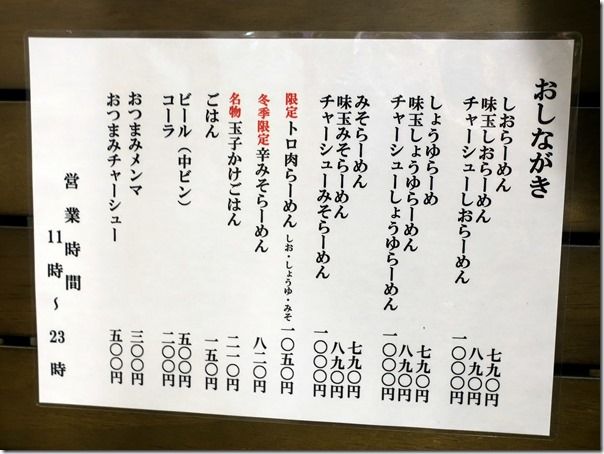 おしながき
しおらーめん 七九〇円
味玉しおらーめん 八九〇円
チャーシューしおらーめん 一〇〇〇円
しょうゆらーめ 七九〇円
味玉しょうゆらーめん 八九〇円
チャーシューしょうゆらーめん 一〇〇〇円
みそらーめん 七九〇円
味玉みそらーめん 八九〇円
チャーシューみそらーめん 一〇〇〇円
限定 トロ肉らーめん しお・しょうゆ・みそ 一〇五〇円
冬季限定 辛みそらーめん 八二〇円
名物 玉子かけごはん 二一〇円
ごはん 一五〇円
ビール（中ビン） 五〇〇円
コーラ 二〇〇円
おつまみメンマ 三〇〇円
おつまみチャーシュー 五〇〇円
営業時間
11時～23時